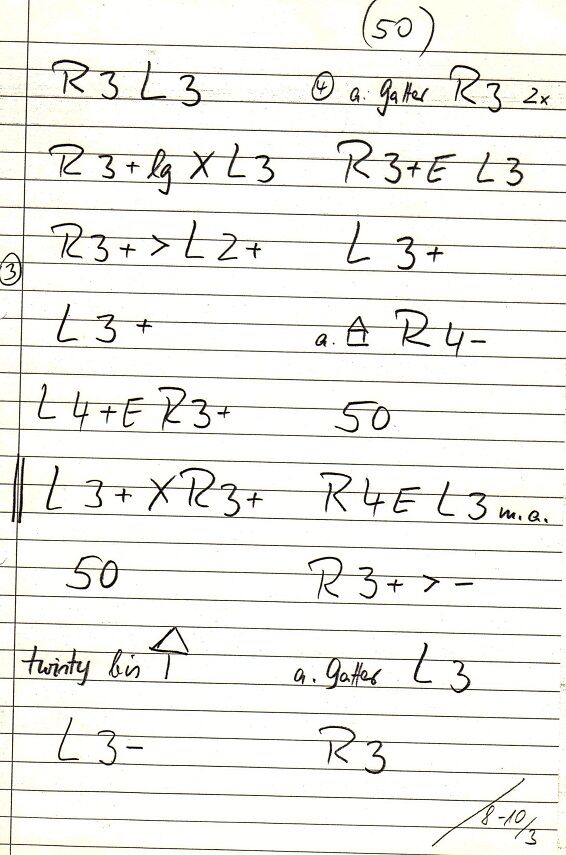 (50)
R3 L3
R3+lg X L3
R3+ > L2+
③
L3+
L4+E R3+
L3+ X R3+
50
twisty bis
L3-
④ a. Gatter R3 2x
R3+E L3
L3+
a. R4-
50
R4E L3 m.a.
R3+ > -
a. Gatter L3
R3
8-10/3